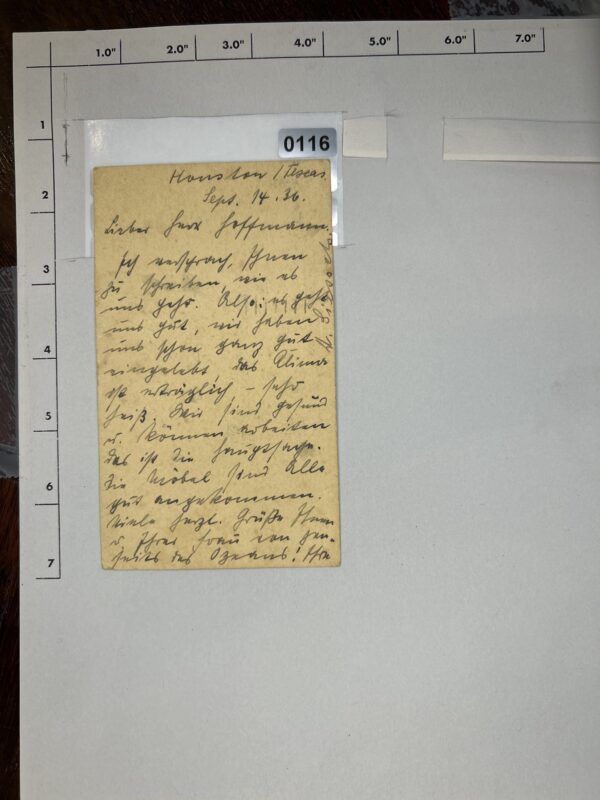 1.0" 2.0" 3.0" 4.0" 5.0" 6.0" 7.0"
1
2
3
4
5
6
7
0116
Houston / Texas.
Sept. 14. 36.
Lieber Herr Hoffmann.
Ich versprach, Ihnen
zu schreiben, wie es
uns geht. Also: es geht
uns gut, wir haben
uns schon ganz gut
eingelebt das Klima
ist erträglich – sehr
heiß. Wir sind gesund
u. können arbeiten
das ist die Hauptsache.
Die Möbel sind alle
gut angekommen.
Viele herzl. Grüße Ihnen
u. Ihrer Frau von jen-
seits des Ozeans! Ihre